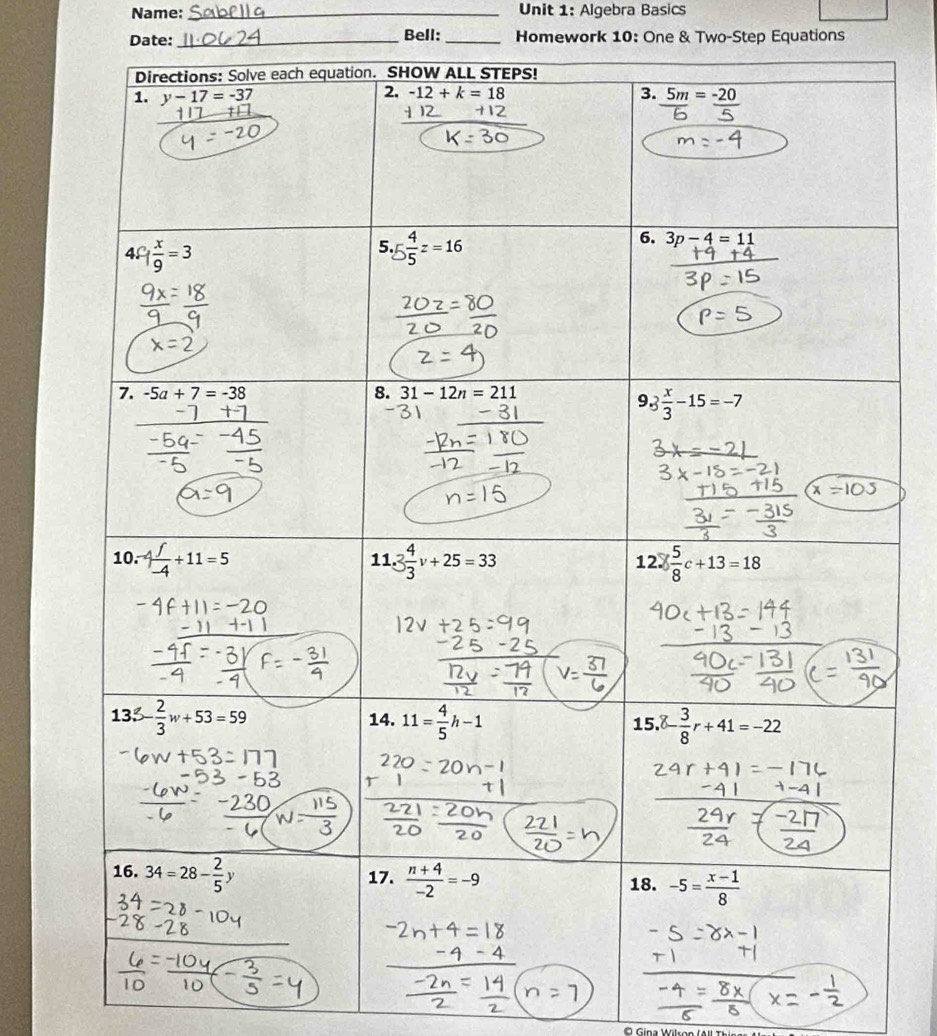 Name: Sabella Unit 1: Algebra Basics
Date: 11.06 24 Bell: Homework 10: One & Two-Step Equations
Directions: Solve each equation. SHOW ALL STEPS!
1. y − 17 = -37
+17 +17
y = -20
2. -12 + k = 18
+12 +12
k = 30
3. 5m = -20
5 5
m = -4
4. 9 x/9 = 3
9x/9 = 18/9
x = 2
5. 5 4/5 z = 16
20z/20 = 80/20
z = 4
6. 3p − 4 = 11
+4 +4
3p = 15
p = 5
7. -5a + 7 = -38
-7 +-7
-5a/-5 = -45/-5
a = 9
8. 31 − 12n = 211
-31 -31
-12n/-12 = 180/-12
n = 15
9. 3 x/3 − 15 = −7
3x = -21
3x - 15 = -21
+15 +15
3x/3 = -315/3
x = 105
10. -4 f/-4 + 11 = 5
-4f + 11 = -20
-11 +-11
-4f/-4 = -31/-4
f = -31/4
11. 3 4/3 v + 25 = 33
12v + 25 = 99
-25 -25
12v/12 = 74/12
v = 37/6
12. 8 5/8 c + 13 = 18
40c + 13 = 144
-13 -13
40c/40 = 131/40
c = 131/40
13. 3 -2/3 w + 53 = 59
-6w + 53 = 177
-53 -53
-6w/-6 = -230/-6
w = 115/3
14. 11 = 4/5 h − 1
220 = 20h - 1
+ 1 +1
221/20 = 20h/20
221/20 = h
15. 8 -3/8 r + 41 = −22
24r + 41 = -176
-41 +-41
24r/24 = -217/24
16. 34 = 28 − 2/5 y
34 = 28 - 10y
-28 -28
6/10 = -10y/10
-3/5 = y
17. n + 4/-2 = −9
-2n + 4 = 18
-4 -4
-2n/2 = 14/2
n = 7
18. -5 = x − 1/8
-5 = 8x - 1
+1 +1
-4/8 = 8x/8
x = -1/2